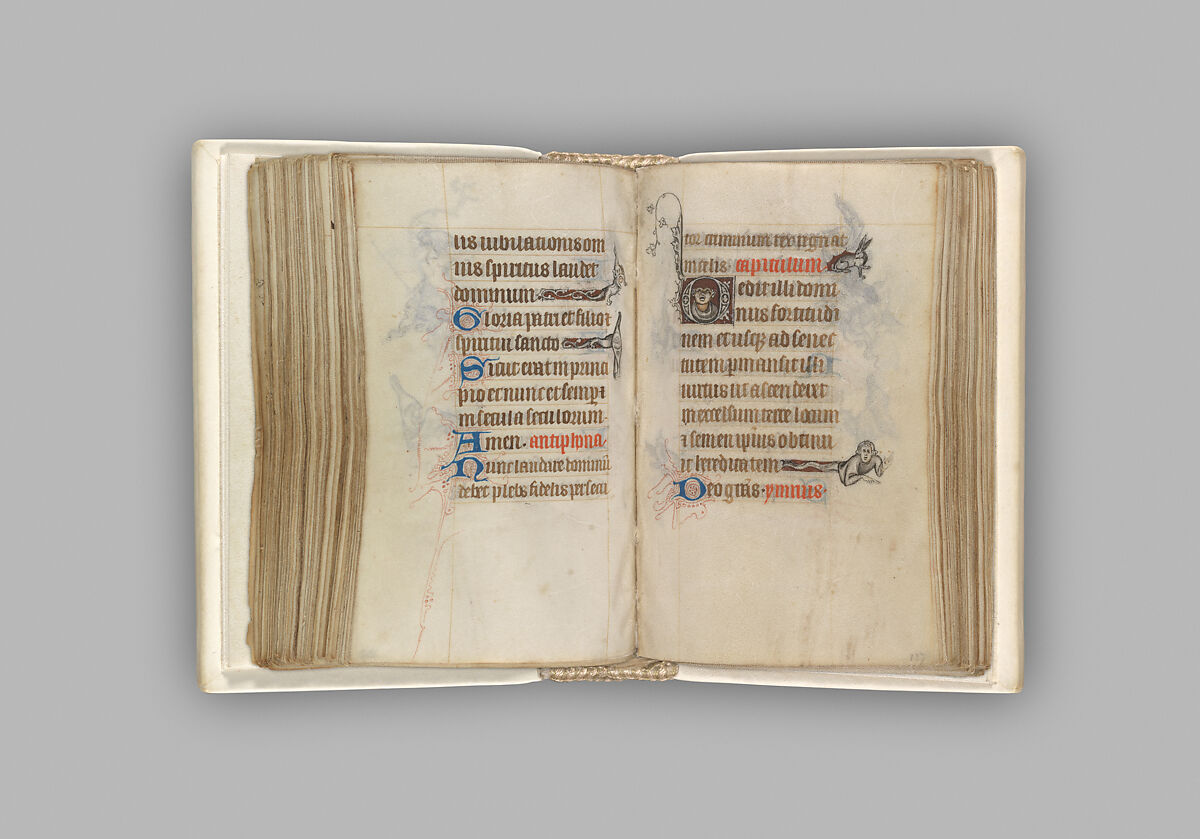 lis iubilationis om
nis spiritus laudet
dominum
Gloria patri et filio ⁊
spiritui sancto
Sicut erat in princi
pio et nunc et semper ⁊
in secula seculorum.
Amen. antiphona.
Nunc laudare dominū
debet plebs fidelis
tor omnium rex regnat
in celis. capitulum
Dedit illi domi
nus fortitudi
nem et usqꝫ ad senec
tutem permansit illi
uirtus ut ascenderet
in excelsum terre locum
⁊ semen ipsius obtinu
it hereditatem
Deo grās. ymnus.